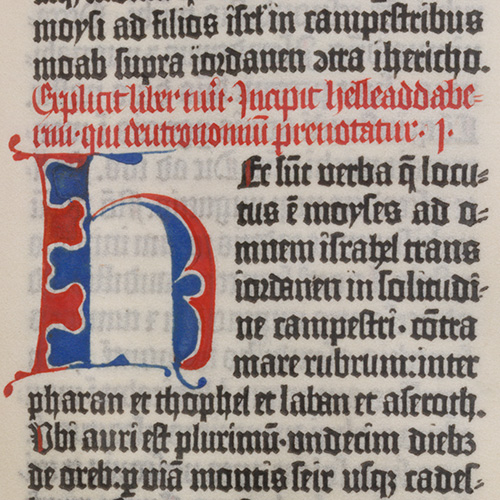 moysi ad filios isrl' in campestribus
moab supra iordanen ꝯtra ihericho.
Explicit liber nu'i. Incipit helleaddabe-
rim. qui deutronomiū prenotatur. I.
Hec sūt verba q̄ locu-
tus ē moyses ad o-
mnem israhel trans
iordanen in solitudi-
ne campestri. cōtra
mare rubrum: inter
pharan et thophel et laban et aseroth.
Ubi auri est plurimū. undecim diebꝫ
de oreb: ꝑ viā montis seir usqꝫ cades-